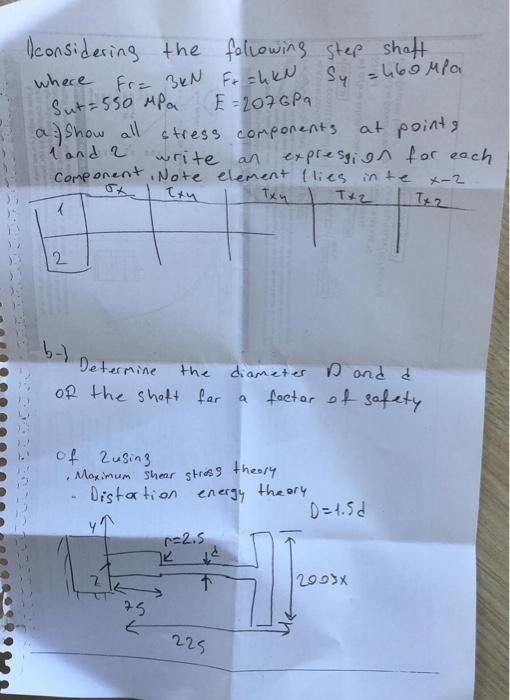 1)considering the following step shaft
where Fr= 3kN Ft =4kN Sy =460 MPa
Sut=550 MPa E=207GPa
a-)Show all stress components at points
1 and 2 write an expression for each
component. Note element 1 lies in te x-z
σx τxy τxy τxz τxz
1
2
b-)
Determine the diameter D and d
of the shaft for a factor of safety
of 2using
. Maximum shear stress theory
- Distortion energy theory
D=1.5d
y
r=2.5
d
z
200
x
75
225